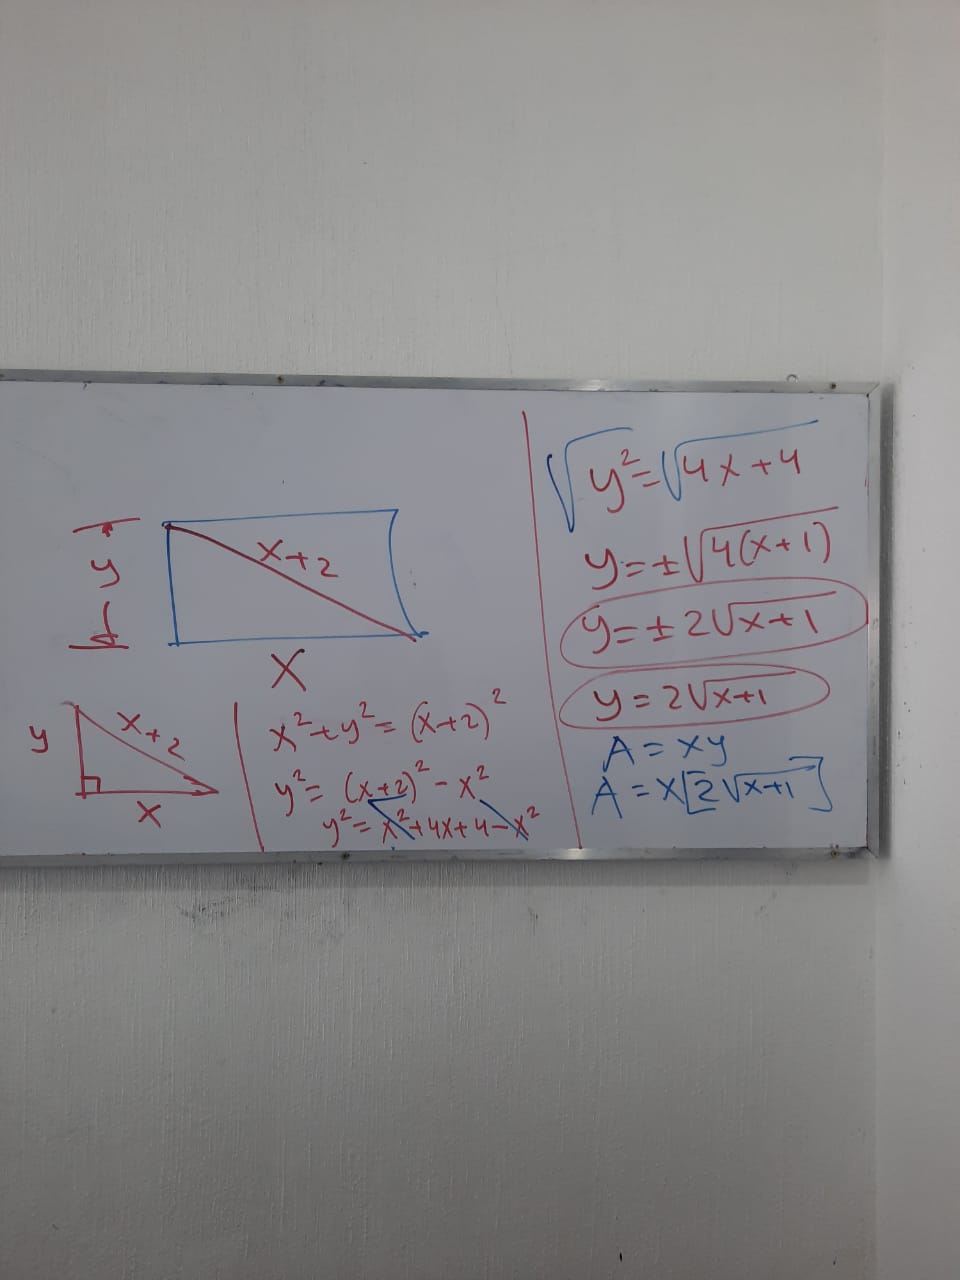 y
x+2
x
y
x+2
x
x²+y²=(x+2)²
y²= (x+2)²-x²
y²= x²+4x+4-x²
√y²=√4x+4
y=±√4(x+1)
y=±2√x+1
y=2√x+1
A=xy
A=x[2√x+1]